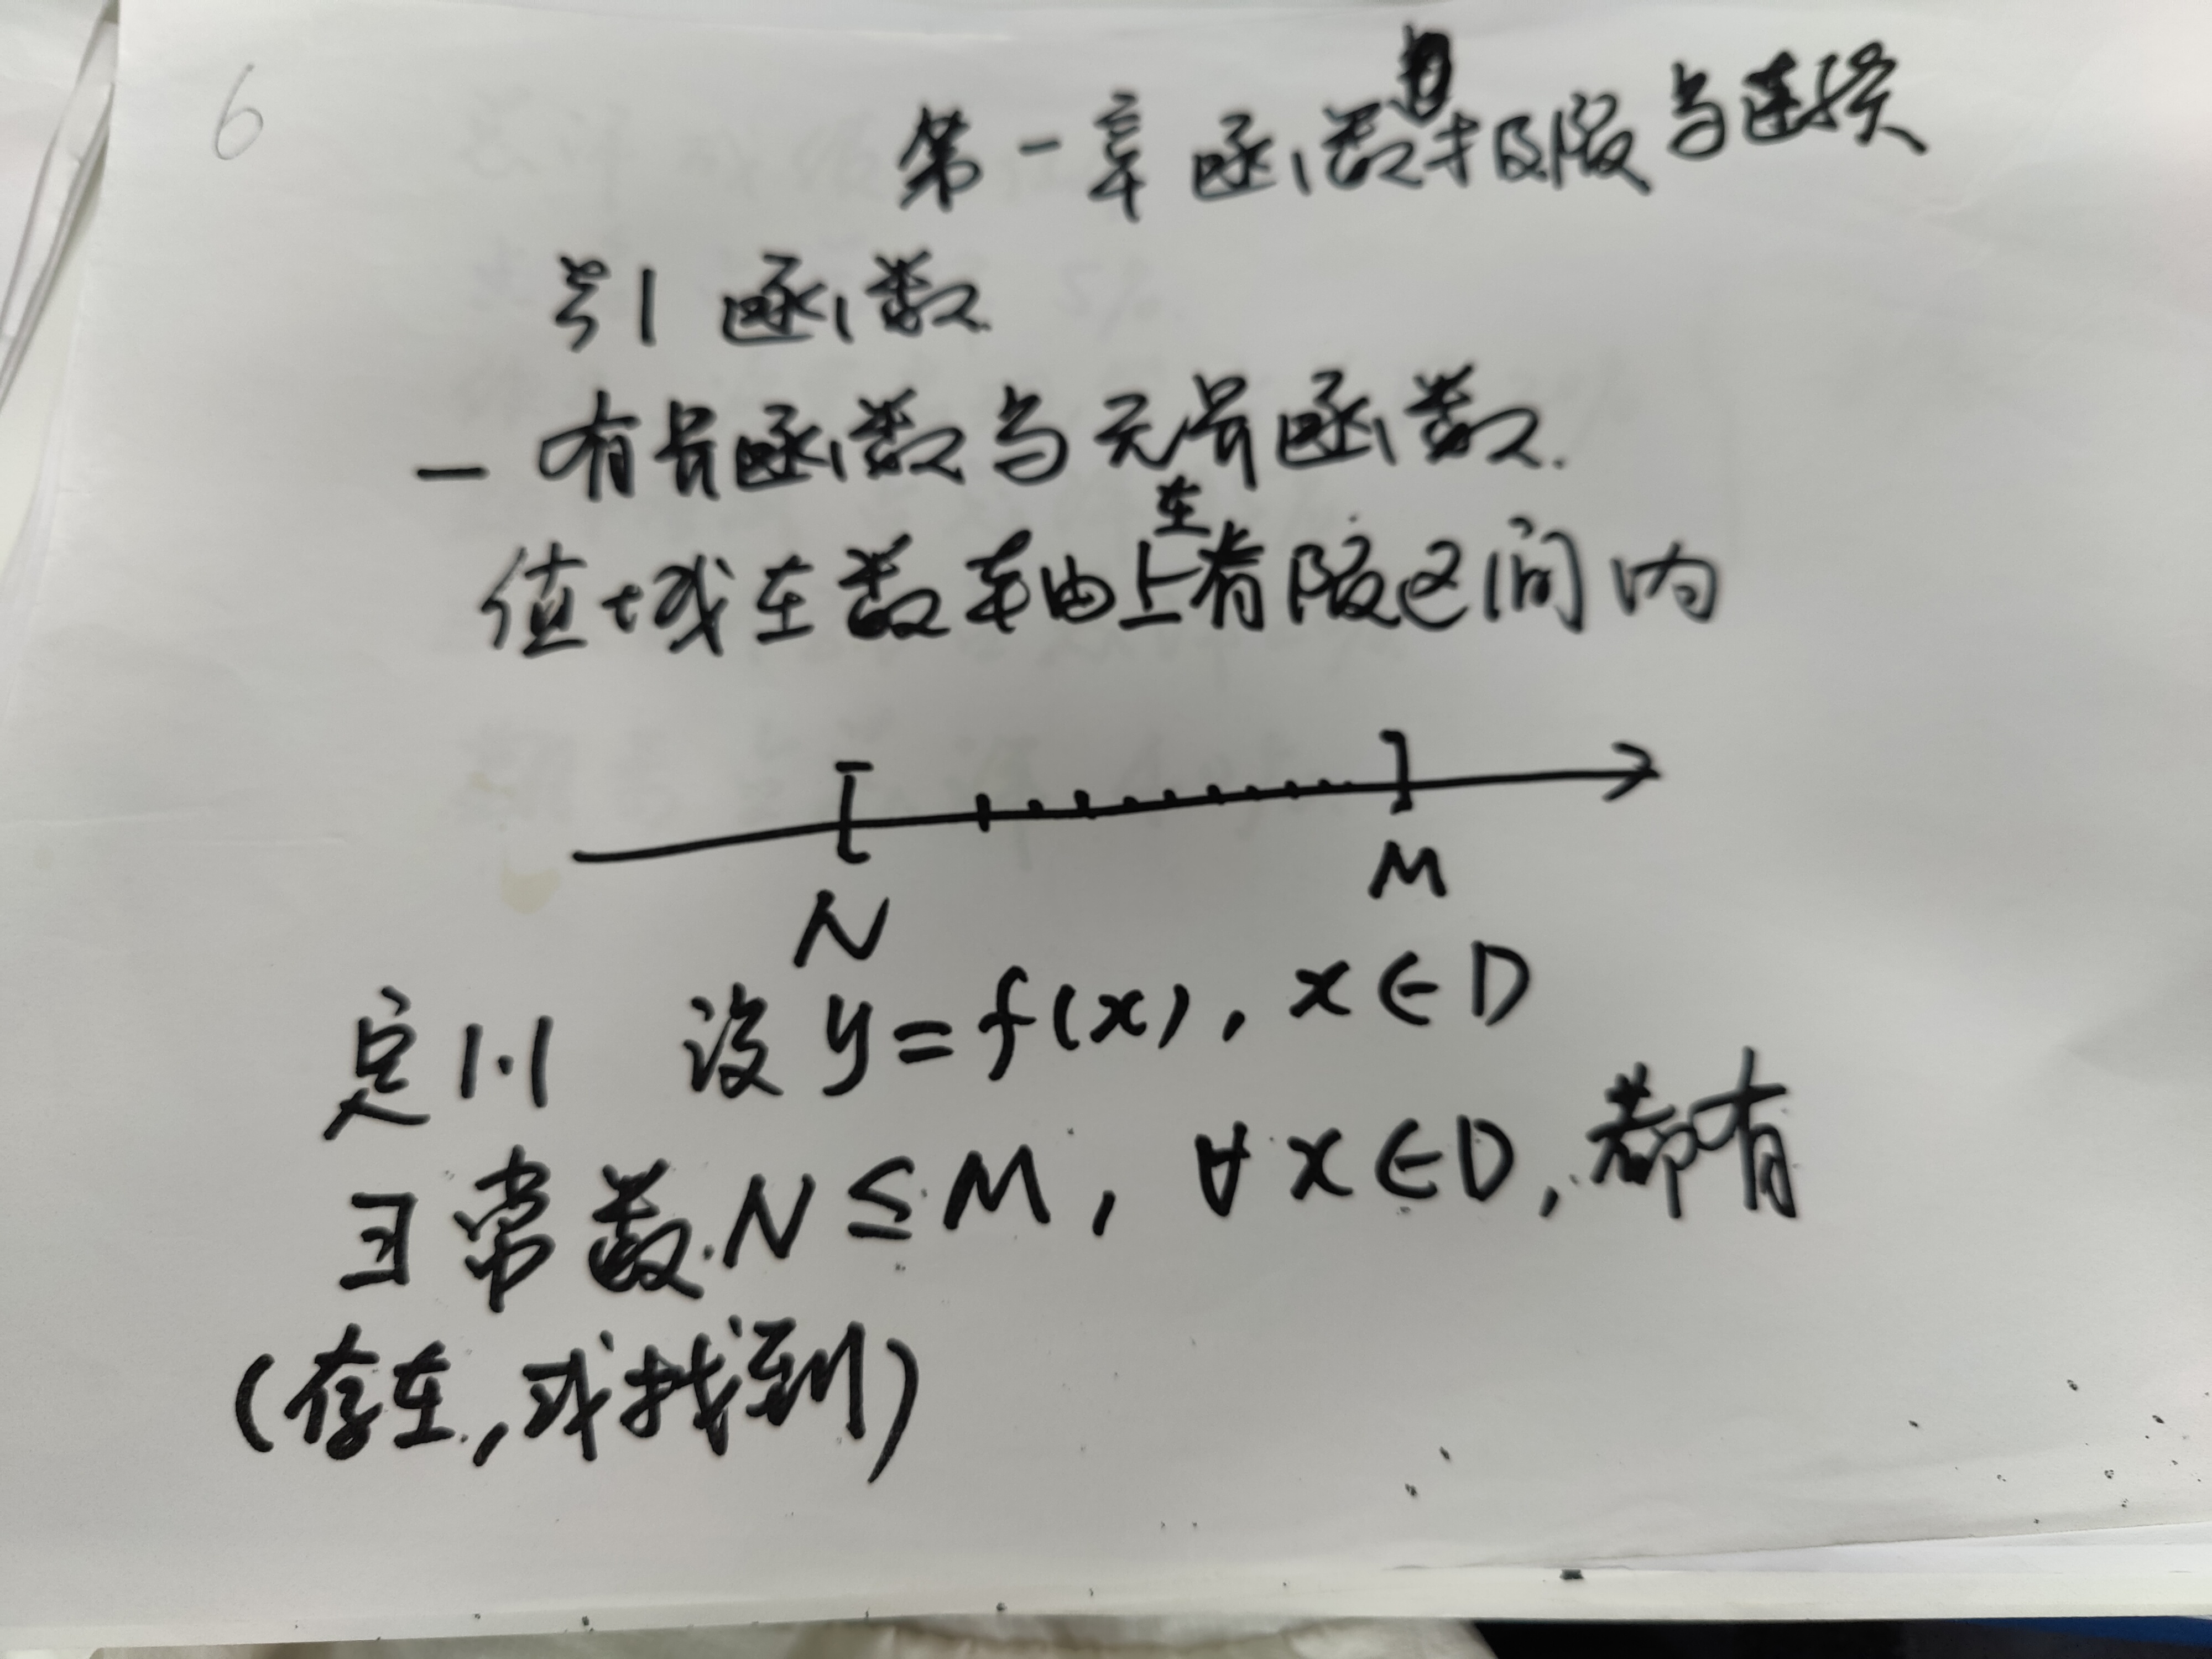 6
第一章 函数极限与连续
§1 函数
一 有界函数与无界函数.
值域在数轴上在有限区间内
N M
定1.1 设 y=f(x), x∈D
∃常数 N≤M, ∀x∈D, 都有
(存在,或找到)